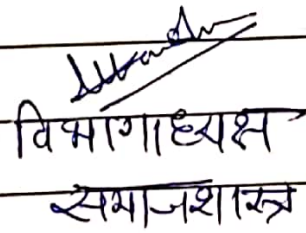 विभागाध्यक्ष
समाजशास्त्र